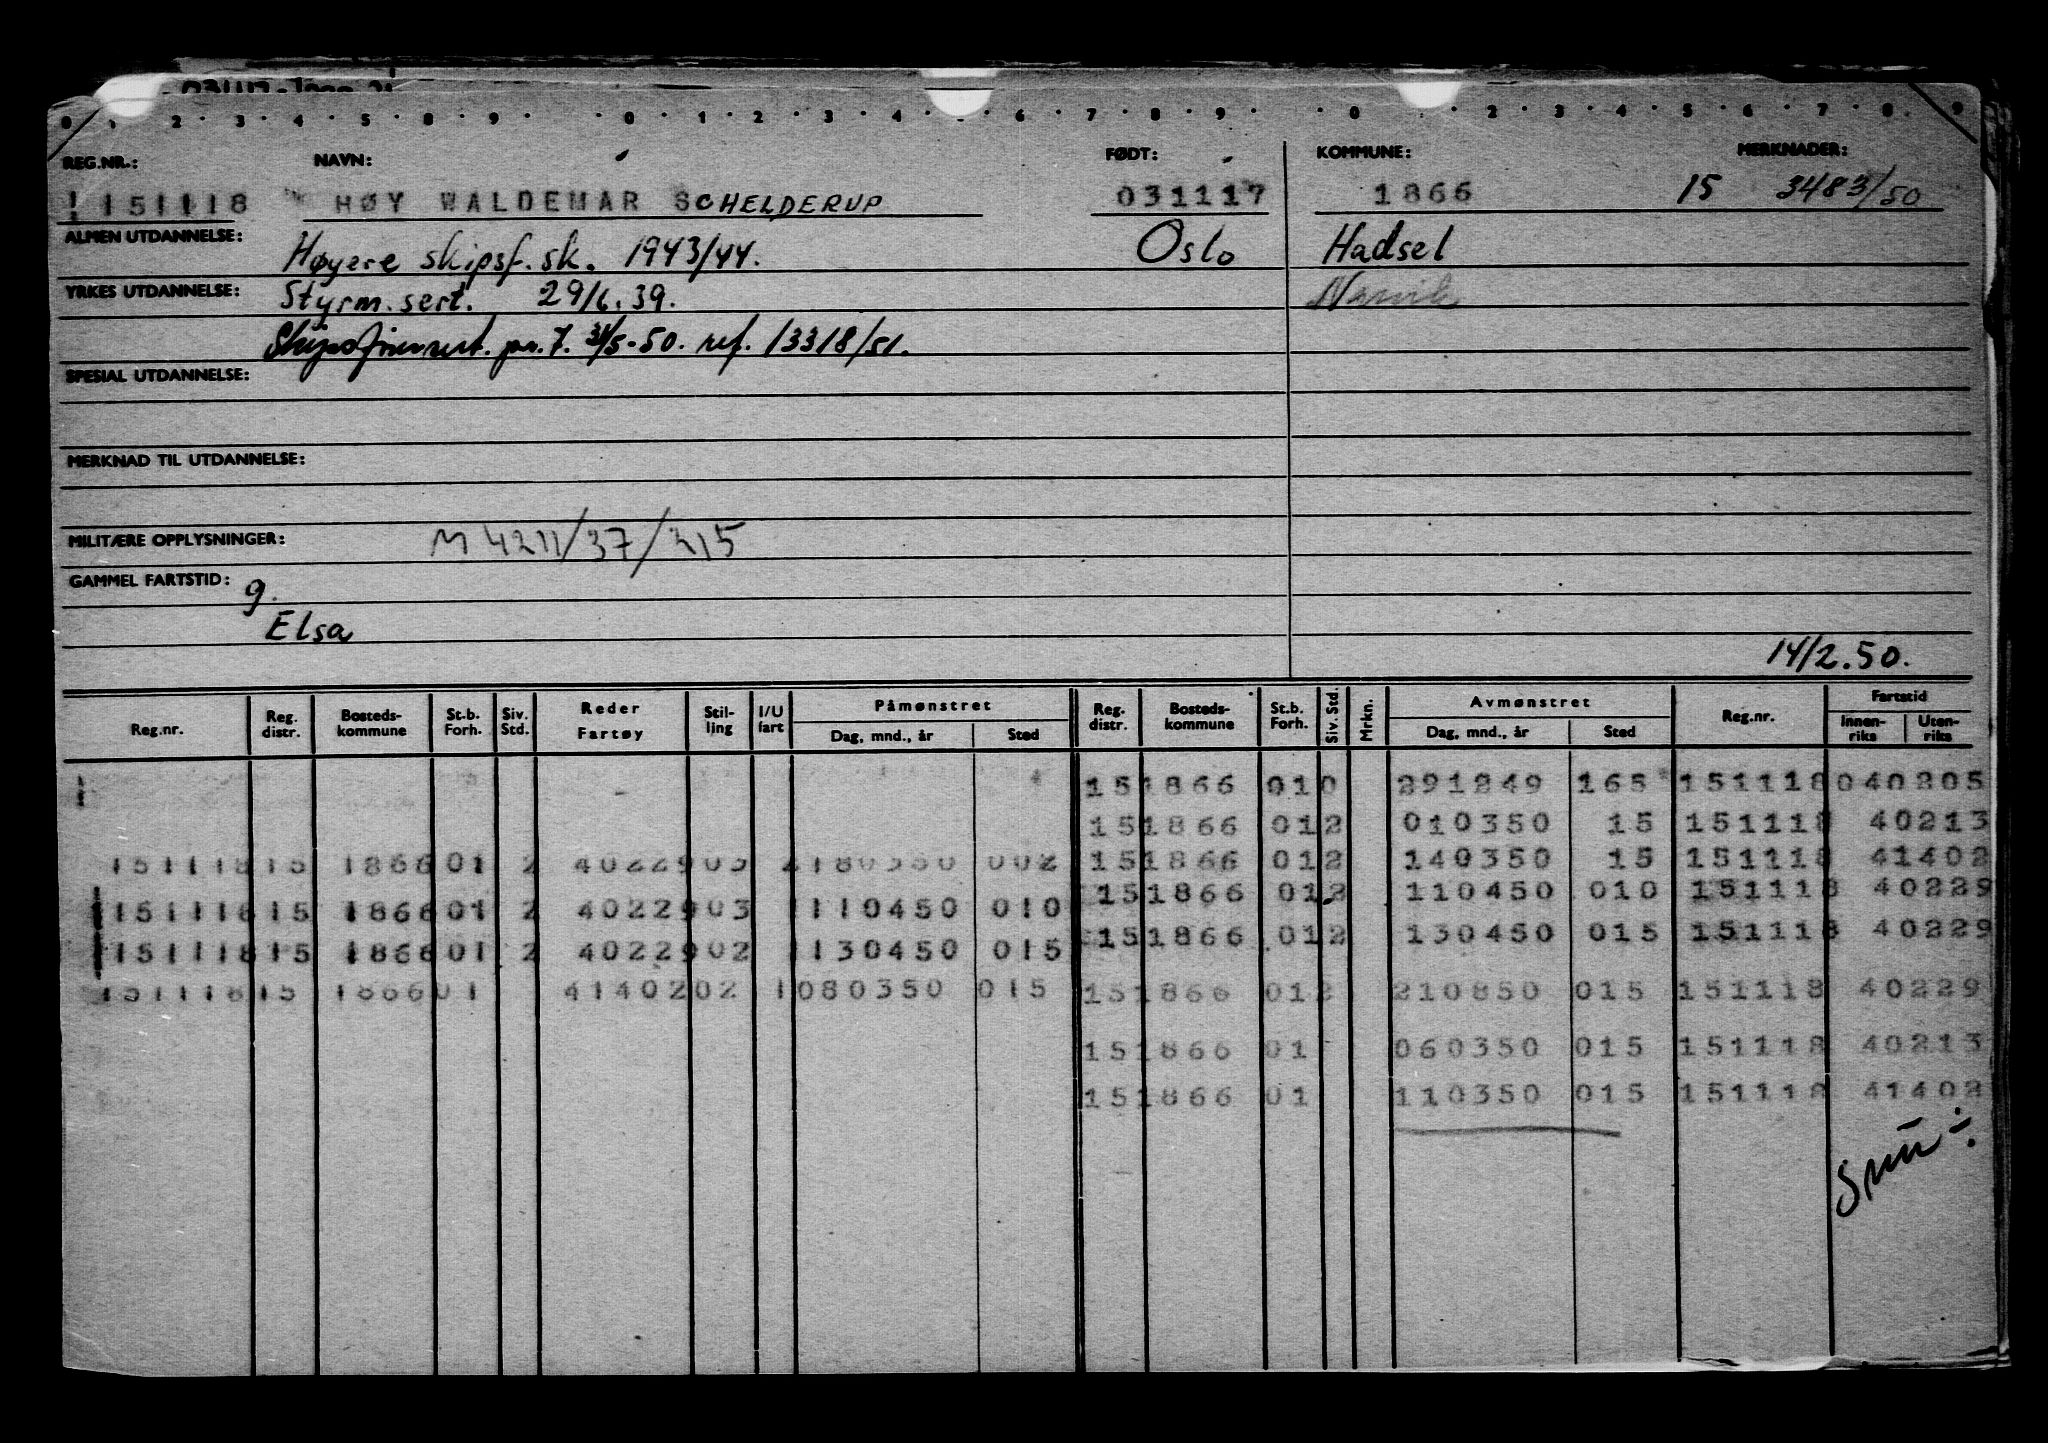 REG.NR.: NAVN: FØDT: KOMMUNE: MERKNADER:
151118 HØY WALDEMAR SCHELDERUP 031117 1866 15 3483/50
ALMEN UTDANNELSE: Høyere skipsf. sk. 1943/44. Oslo Hadsel
YRKES UTDANNELSE: Styrm. sert. 29/6.39. Narvik
Skipsførersert. pr. 7. 31/5-50. ref. 13318/51.
SPESIAL UTDANNELSE:
MERKNAD TIL UTDANNELSE:
MILITÆRE OPPLYSNINGER: M 4211/37/215
GAMMEL FARTSTID: g.
Elsa
14/2.50.
Reg.nr. Reg. distr. Bosteds-kommune St.b. Forh. Siv. Std. Reder Fartøy Stil-ling I/U fart Påmønstret Dag, mnd., år Sted Reg. distr. Bosteds-kommune St.b. Forh. Siv. Std. Mrkn. Avmønstret Dag, mnd., år Sted Reg.nr. Fartstid Innen-riks Uten-riks
151866 010 291249 165 151118 040205
151866 012 010350 15 151118 40213
151118 15 1866 01 2 40229 03 180350 002 151866 012 140350 15 151118 41402
151118 15 1866 01 2 40229 03 1 110450 010 151866 012 110450 010 151118 40229
151118 15 1866 01 2 40229 02 1 130450 015 151866 012 130450 015 151118 40229
151118 15 1866 01 41402 02 1 080350 015 151866 012 210850 015 151118 40229
151866 01 060350 015 151118 40213
151866 01 110350 015 151118 41402